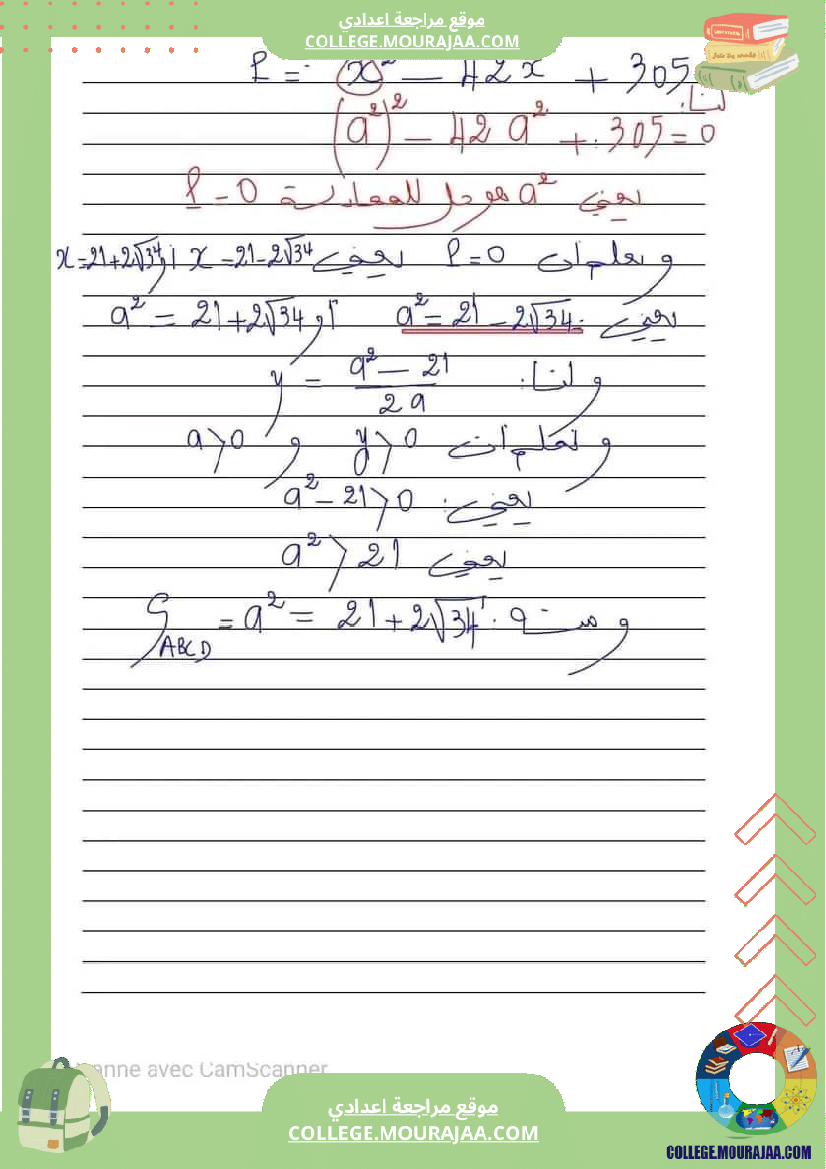 موقع مراجعة اعدادي
COLLEGE.MOURAJAA.COM
P = x² - 42x + 305
لنا:
(a²)² - 42 a² + 305 = 0
يعني a² هو حل للمعادلة P = 0
و نعلم أن P = 0 يعني x = 21 - 2√34 أو x = 21 + 2√34
يعني a² = 21 - 2√34 أو a² = 21 + 2√34
و لنا: y = (a² - 21)/(2a)
و نعلم أن y > 0 و a > 0
يعني: a² - 21 > 0
يعني a² > 21
و منه S_ABCD = a² = 21 + 2√34
anne avec CamScanner
موقع مراجعة اعدادي
COLLEGE.MOURAJAA.COM
COLLEGE.MOURAJAA.COM